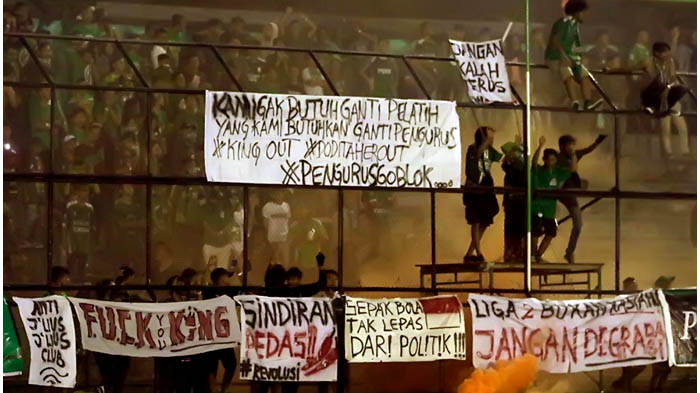 JANGAN
KALAH
TERUS
KAMI GAK BUTUH GANTI PELATIH
YANG KAMI BUTUHKAN GANTI PENGURUS
#KING OUT #DODITAHEROUT
#PENGURUSGOBLOK....
ANTI
J'LVS
J'LVS
CLUB
F.U.C.K YOU KING
SINDIRAN
PEDAS!!
#REVOLUSI
SEPAK BOLA
TAK LEPAS
DARI POLITIK!!!
LIGA 2 BUKAN
JANGAN DEGRADA
P